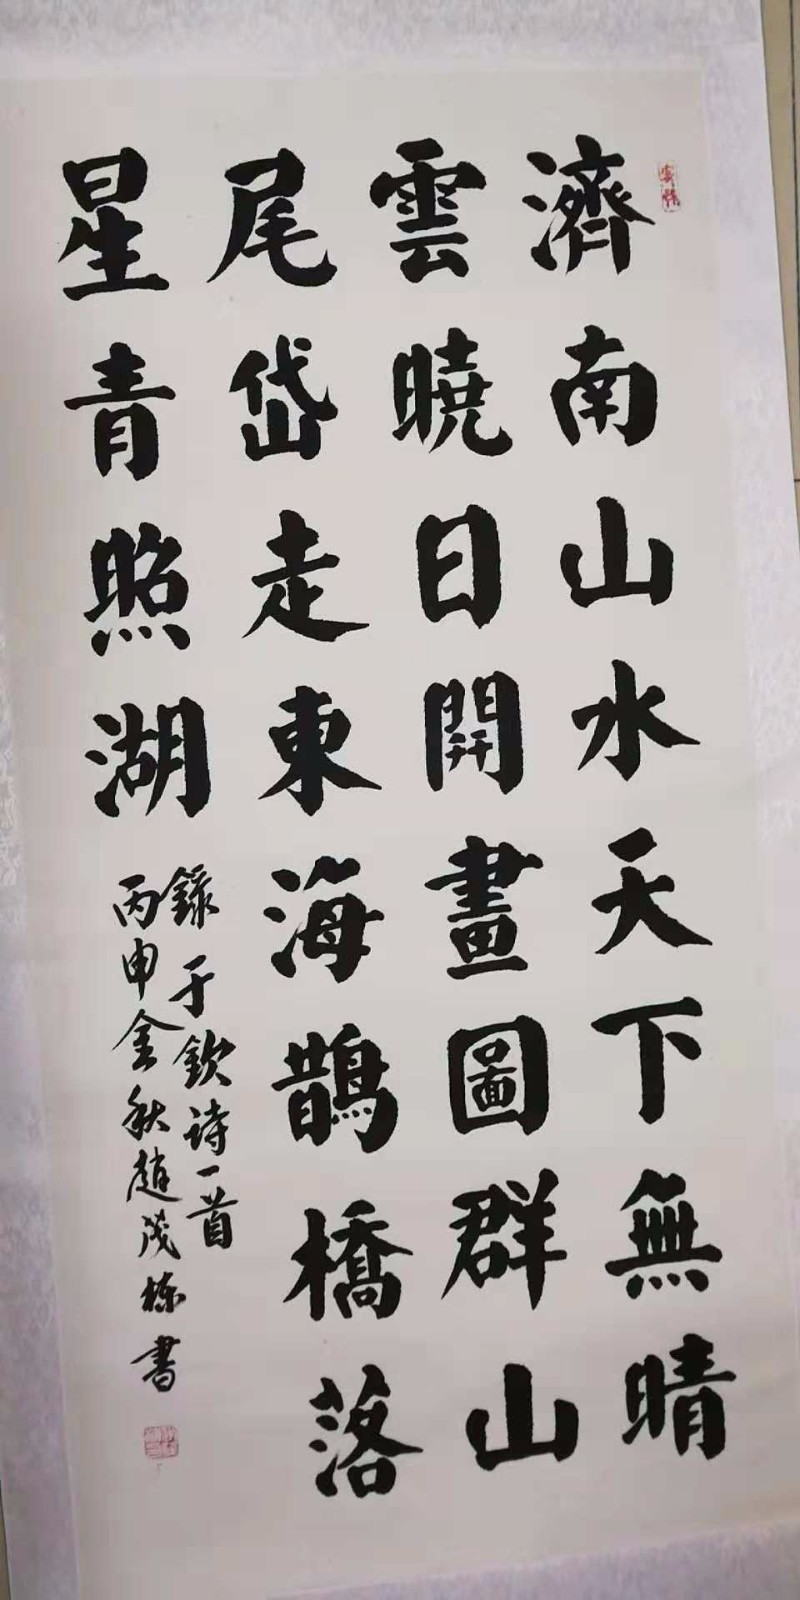 濟南山水天下無晴
雲曉日開畫圖群山
尾岱走東海鵲橋落
星青照湖
錄于欽詩一首
丙申金秋趙茂棟書